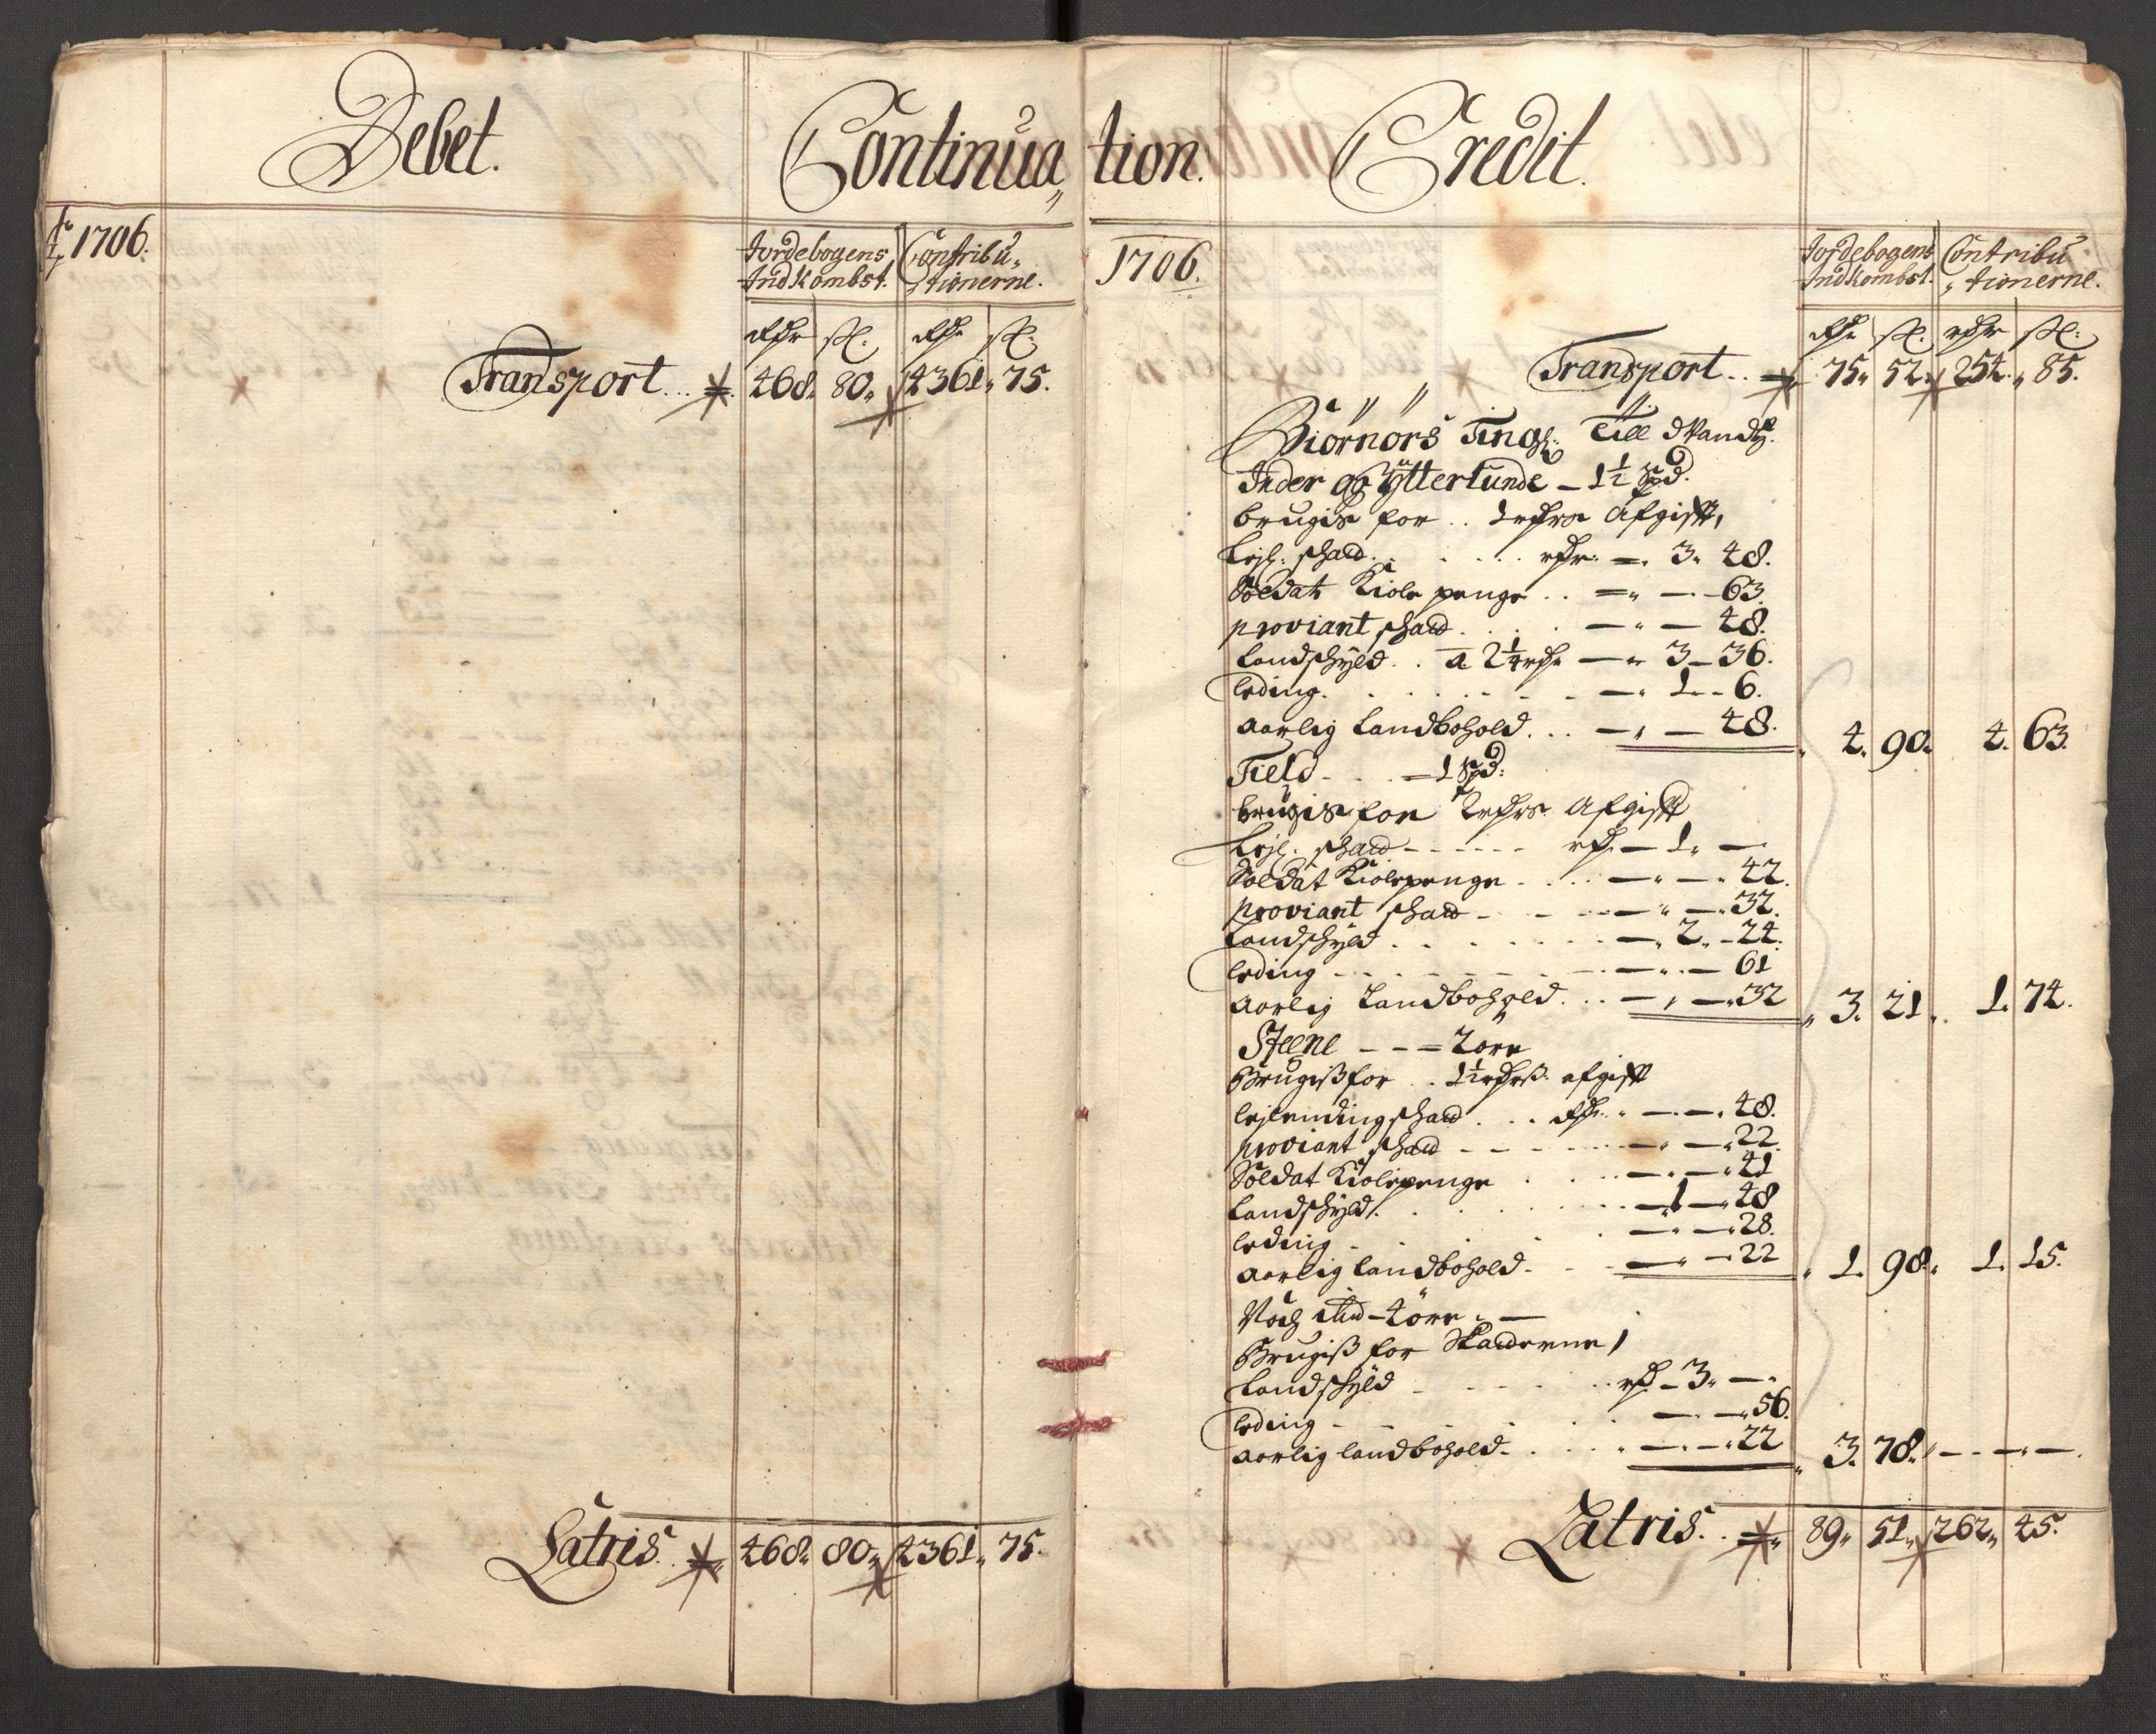 Debet.
Continua„
Ao 1706.
Jordebogens Contribu„
IndKombst. „tionerne.
Rdr ſk. Rdr ſk.
Transport... 468„ 80„ 4361„ 75.
Latris. 468„ 80„ 4361„ 75.
tion. Credit.
1706.
Jordebogens Contribu
IndKombst. „tionerne.
Rdr ſk. rdr ſk:
Transport.. 75„ 52„ 254„ 85.
Biörnörs Tingl: Till
Inder og Ytterlunde – 1½ Spd.
brugis for .. Afgifft,
Lejl: skatt. . . . . . rdr. – 3„ 48.
Soldat Kiole penge .. – „ – 63
proviant skatt . . . . – „ – 48.
Landskyld .. a 2¼ rdr – „ 3 – 36.
leding. . . . . . . . – „ 1 – 6.
aarlig Landbohold. .. – „ – 48. 4. 90. 4. 63.
Field – . . – 1 Spd:
brugis for 2 rdrs Afgifft
Lejl. skatt – – – – – rdr – 1„ –
Soldat Kiolepenge . . . – „ – „ 42.
proviant skatt – – – – „ – „ 32.
Landskyld . . . . . . . – „ 2„ – 24.
leding – – – – – – – – „ – 61
aarlig Landbohold. . . – „ – „ 32 3. 21„ 1. 74.
Steene – – – 2 öre
Brugis for .. 1½ rdrs. afgifft
lejlendingskatt . . . Rdr. „ – „ – „ 48.
proviant skatt – – – – – „ – „ 22.
Soldat Kiolepenge . . . – „ – „ 41
Landskyld. . . . . . – 1 – „ 48
leding – . . . . . – „ – „ 28.
aarlig landbohold. – – – „ – 22 1. 98„ 1. 15.
Noch – 4 öre „ –
Brugis for Skatterne,
Landskyld – . . . . . rd – 3„ – „
leding – – – . . . . – „ – „ 56.
aarlig landbohold – . . . . „ – „ – „ 22 3. 78. – – „ –.
Latris. . 89„ 51„ 262„ 45.